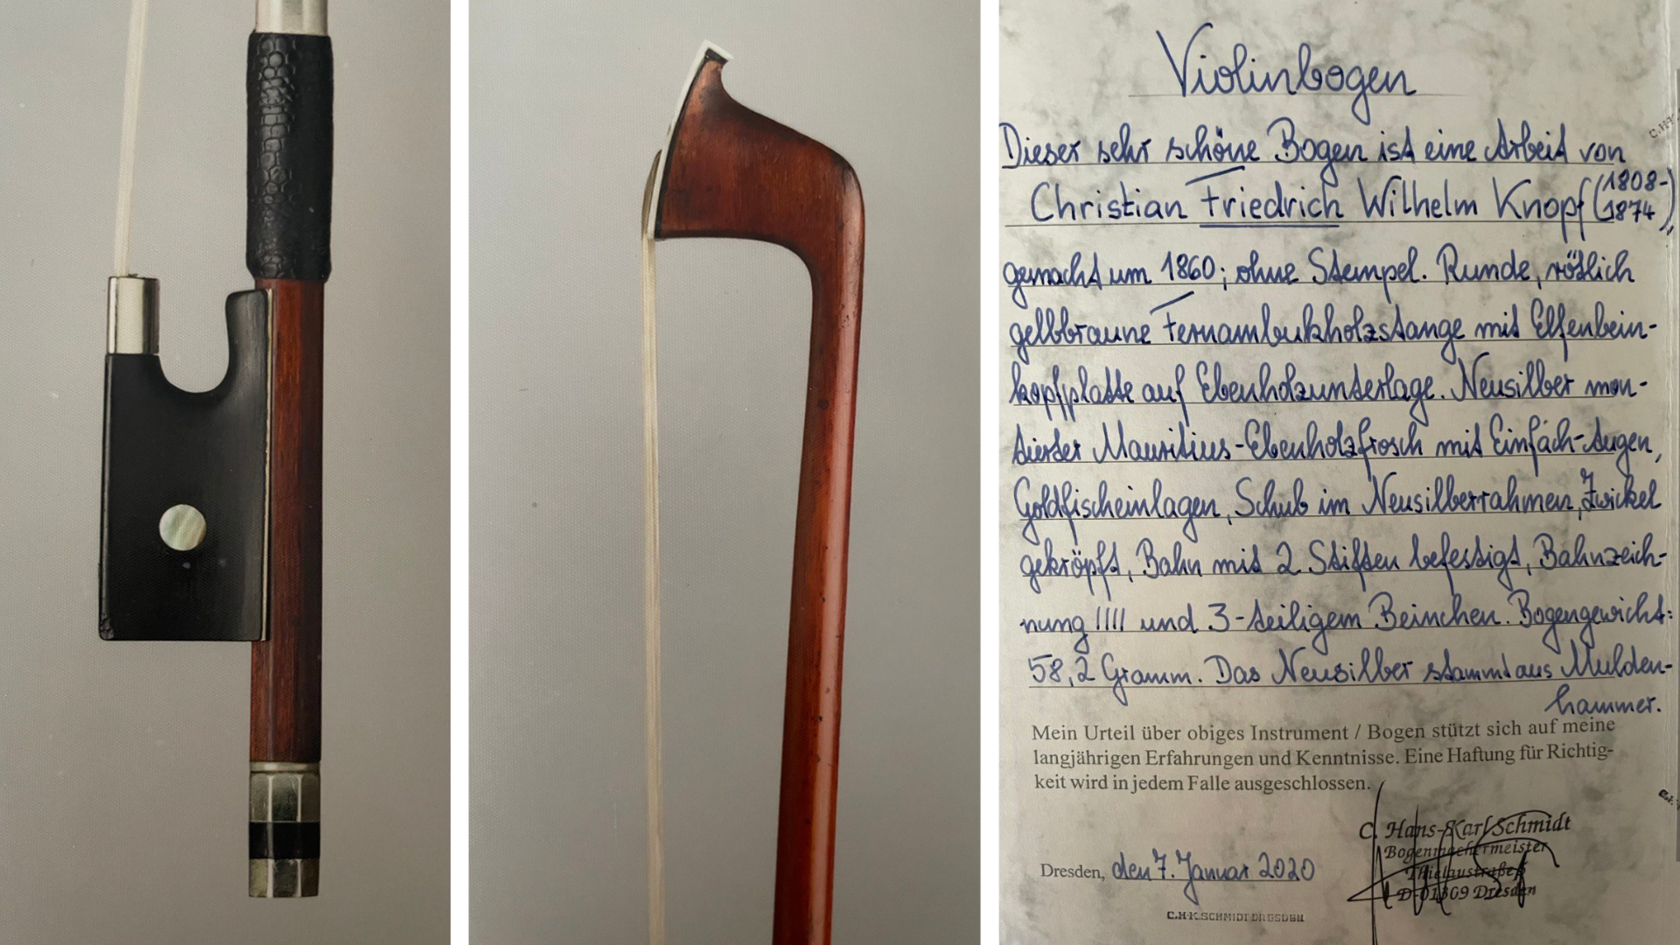 Violinbogen
Dieser sehr schöne Bogen ist eine Arbeit von
Christian Friedrich Wilhelm Knopf (1808-
1874),
gemacht um 1860; ohne Stempel. Runde, rötlich
gelbbraune Fernambukholzstange mit Elfenbein-
kopfplatte auf Ebenholzunterlage. Neusilber mon-
tierter Mauritius-Ebenholzfrosch mit Einfach-Augen,
Goldfischeinlagen, Schub im Neusilberrahmen, Zwickel
gekröpft, Bahn mit 2 Stiften befestigt, Bahnzeich-
nung IIII und 3-teiligem Beinchen. Bogengewicht:
58,2 Gramm. Das Neusilber stammt aus Mulden-
hammer.
Mein Urteil über obiges Instrument / Bogen stützt sich auf meine
langjährigen Erfahrungen und Kenntnisse. Eine Haftung für Richtig-
keit wird in jedem Falle ausgeschlossen.
C. Hans-Karl Schmidt
Bogenmachermeister
Thielaustraße
D-01309 Dresden
Dresden, den 7. Januar 2020
C.H.K.SCHMIDT DRESDEN